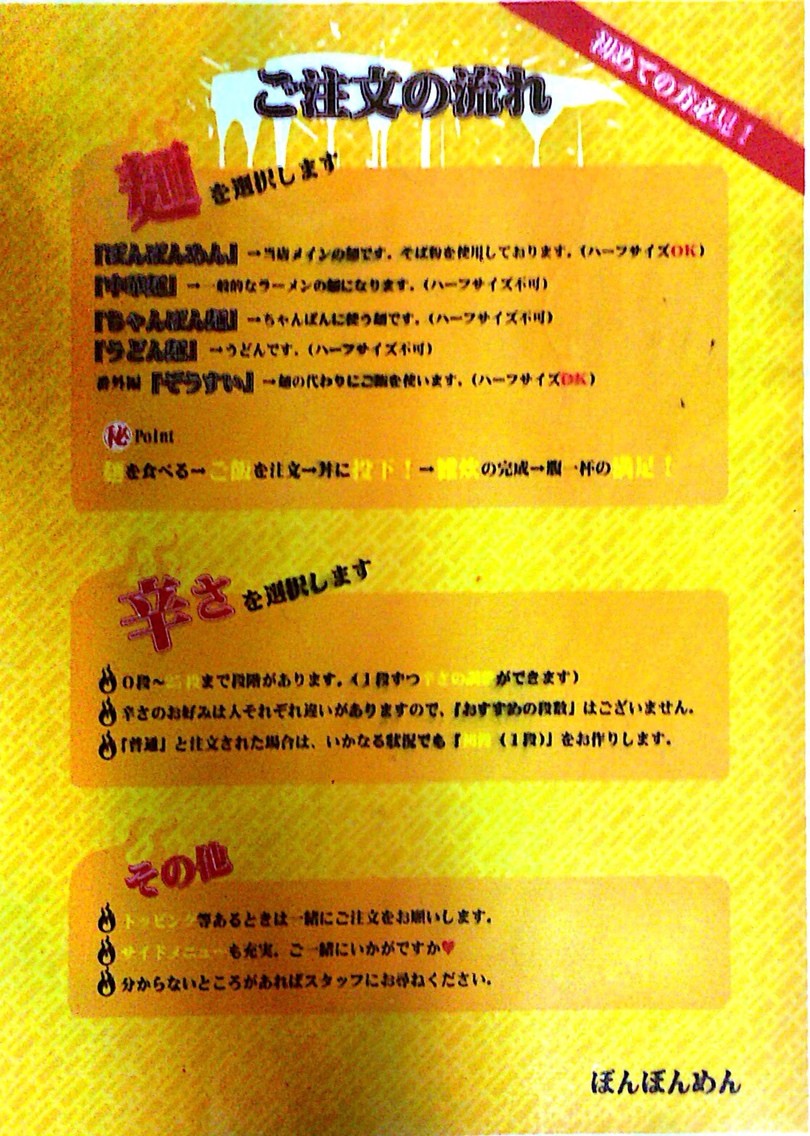 初めての方必見！
ご注文の流れ
麺を選択します
『ぼんぼんめん』→当店メインの麺です。そば粉を使用しております。（ハーフサイズOK）
『中華麺』→一般的なラーメンの麺になります。（ハーフサイズ不可）
『ちゃんぽん麺』→ちゃんぽんに使う麺です。（ハーフサイズ不可）
『うどん麺』→うどんです。（ハーフサイズ不可）
番外編『ぞうすい』→麺の代わりにご飯を使います。（ハーフサイズOK）
㊙Point
麺を食べる→ご飯を注文→丼に投下！→雑炊の完成→腹一杯の満足！
辛さを選択します
0段～段まで段階があります。（1段ずつ辛さの調整ができます）
辛さのお好みは人それぞれ違いがありますので、『おすすめの段数』はございません。
『普通』と注文された場合は、いかなる状況でも『（1段）』をお作りします。
その他
トッピング等あるときは一緒にご注文をお願いします。
サイドメニューも充実。ご一緒にいかがですか♥
分からないところがあればスタッフにお尋ねください。
ぼんぼんめん